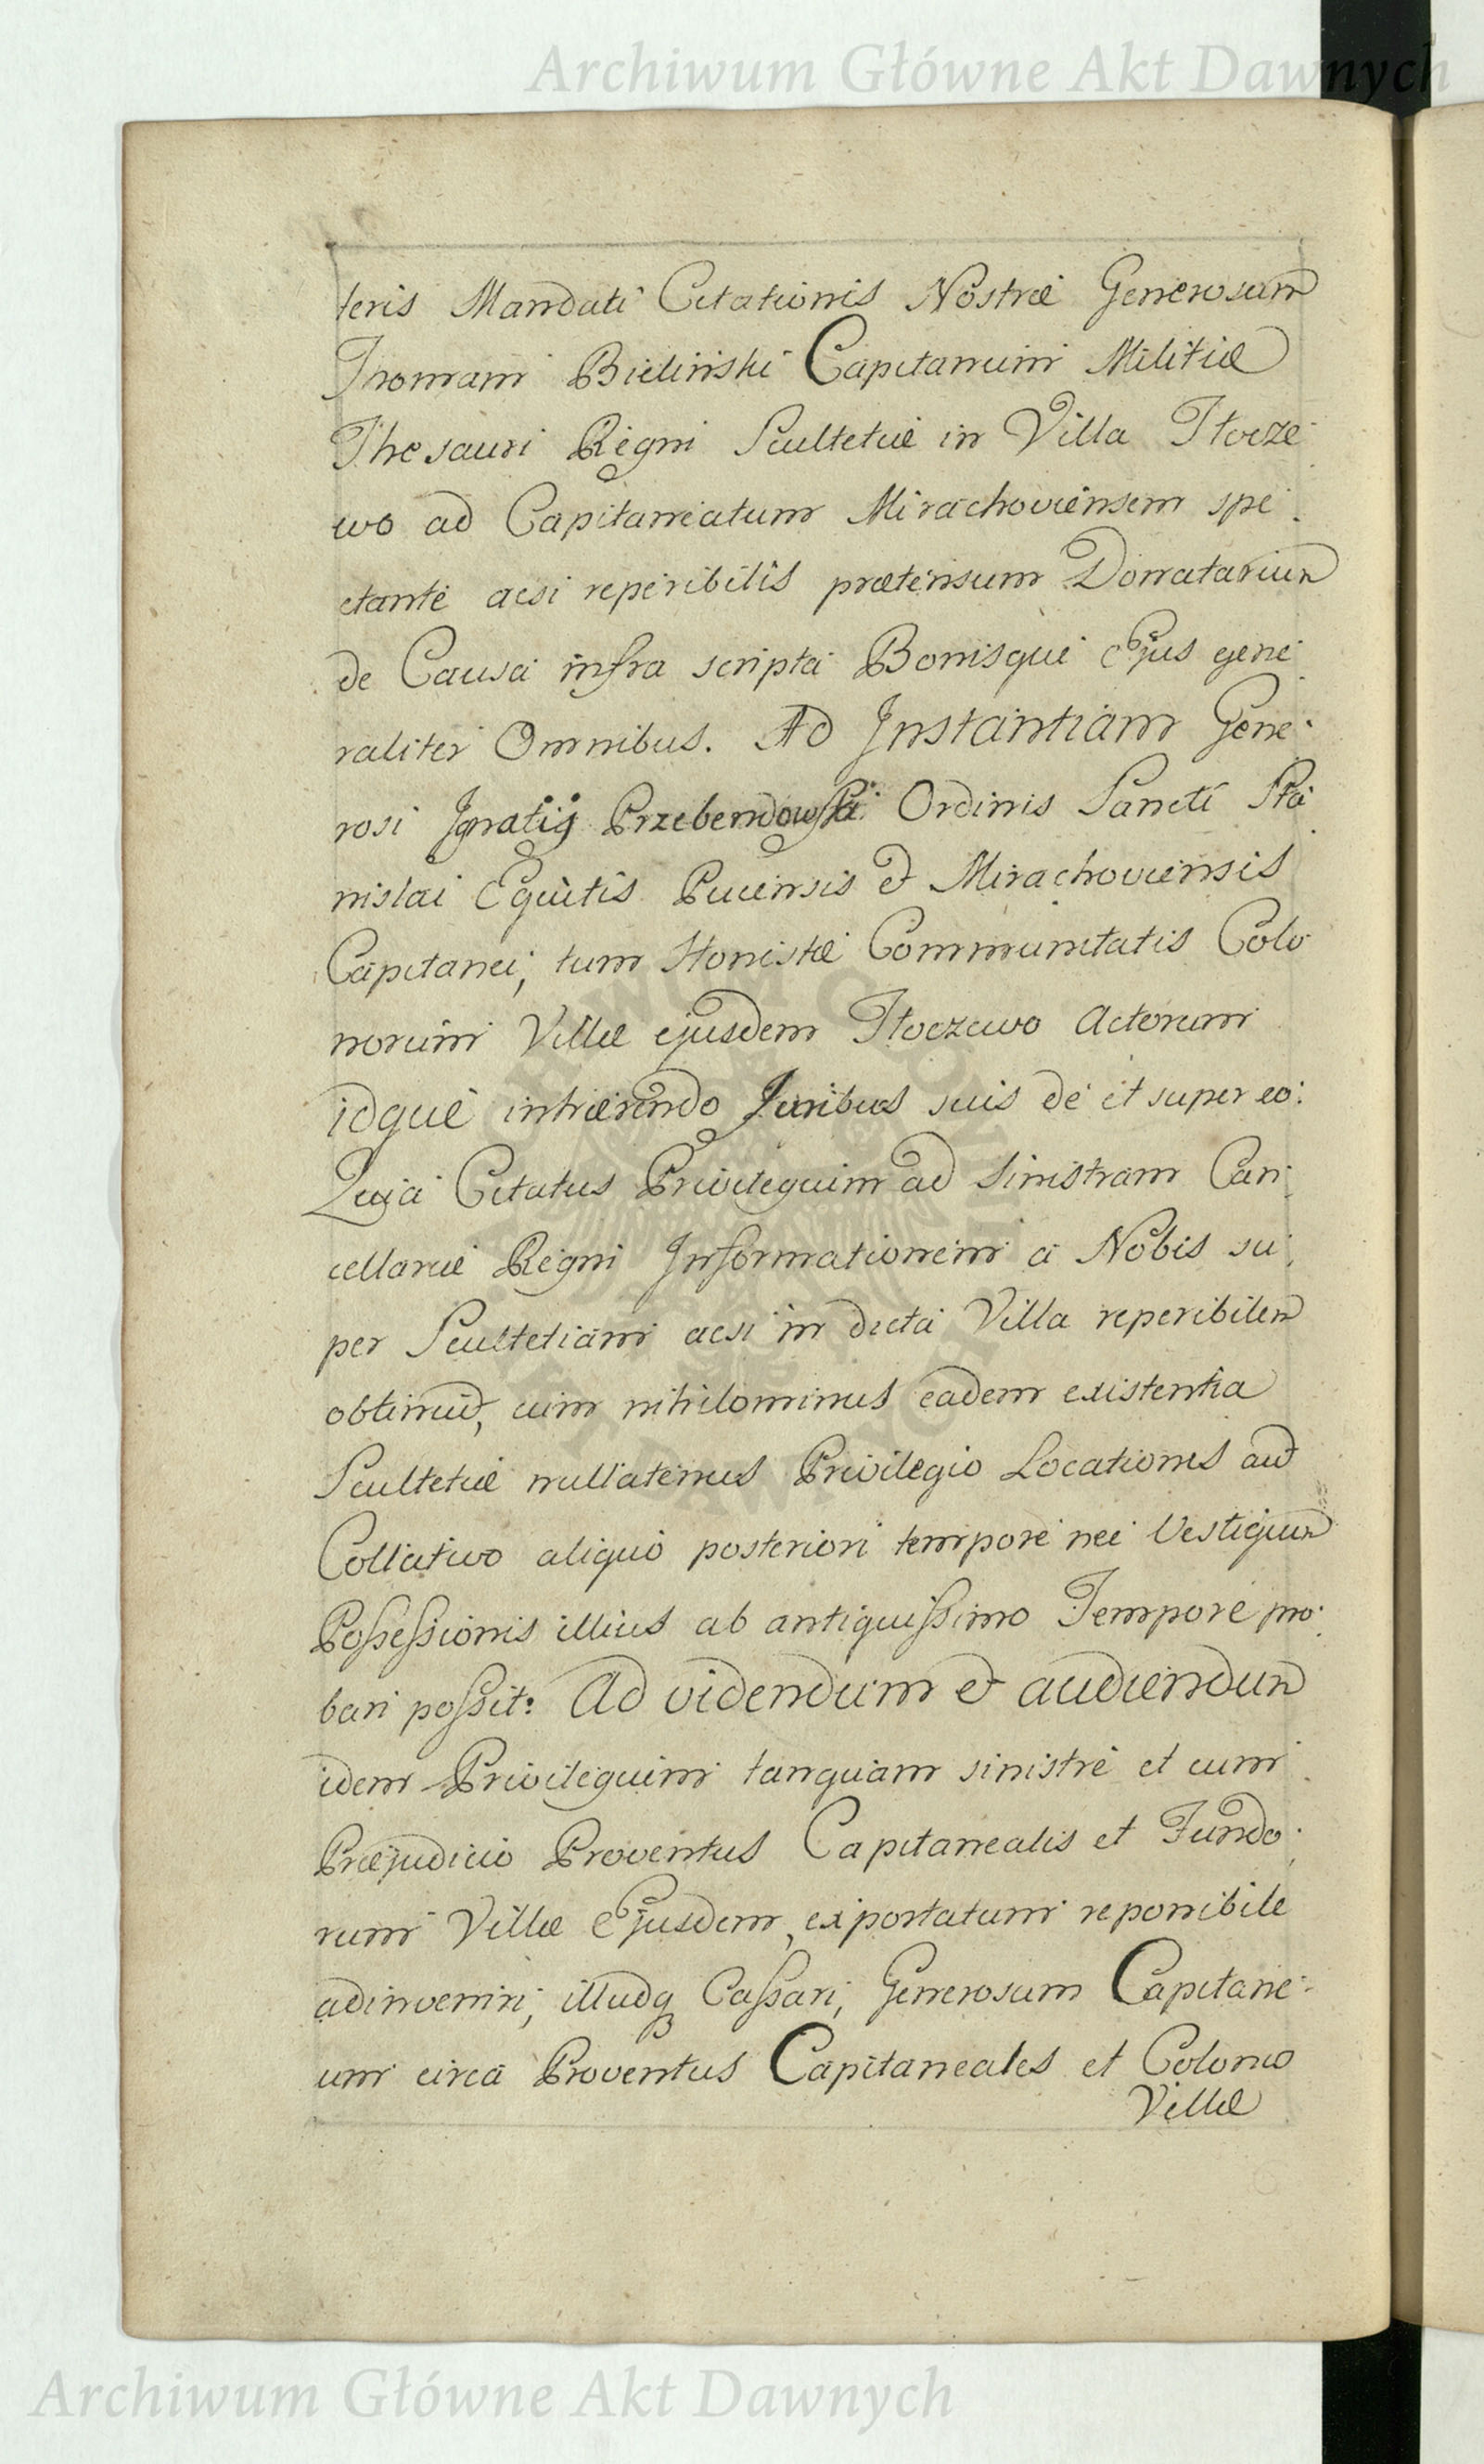 Archiwum Główne Akt Dawnych
teris Mandati Citationis Nostræ Generosum
Thomam Bieliński Capitaneum Militiæ
Thesauri Regni Scultetiæ in Villa Tłocze
wo ad Capitaneatum Mirachoviensem spe
ctante acsi reperibilis prætensum Donatarium
de Causa infra scripta Bonisque Ejus gene
raliter Omnibus. Ad Instantiam Gene
rosi Ignatij Przebendowski Ordinis Sancti Sta
nislai Equitis Pucensis et Mirachoviensis
Capitanei, tum Honestæ Communitatis Colo
norum Villæ ejusdem Tłoczewo Actorum
idque inhærendo Juribus suis de et super eo:
Quia Citatus Privilegium ad sinistram Can
cellariæ Regni Informationem a Nobis su
per Scultetiam acsi in dicta Villa reperibilem
obtinuit, cum nihilominus eadem existentia
Scultetiæ nullatenus Privilegio Locationis aut
Collativo aliquo posteriori tempore nec Vestigium
Possessionis illius ab antiquissimo Tempore pro
bari possit: Ad videndum et audiendum
idem Privilegium tanquam sinistre et cum
Præjudicio Proventus Capitanealis et Fundo
rum Villæ Ejusdem, exportatum reponibile
adinveniri, illudq Cassari, Generosum Capitane
um circa Proventus Capitaneales et Colonos
Villæ
Archiwum Główne Akt Dawnych